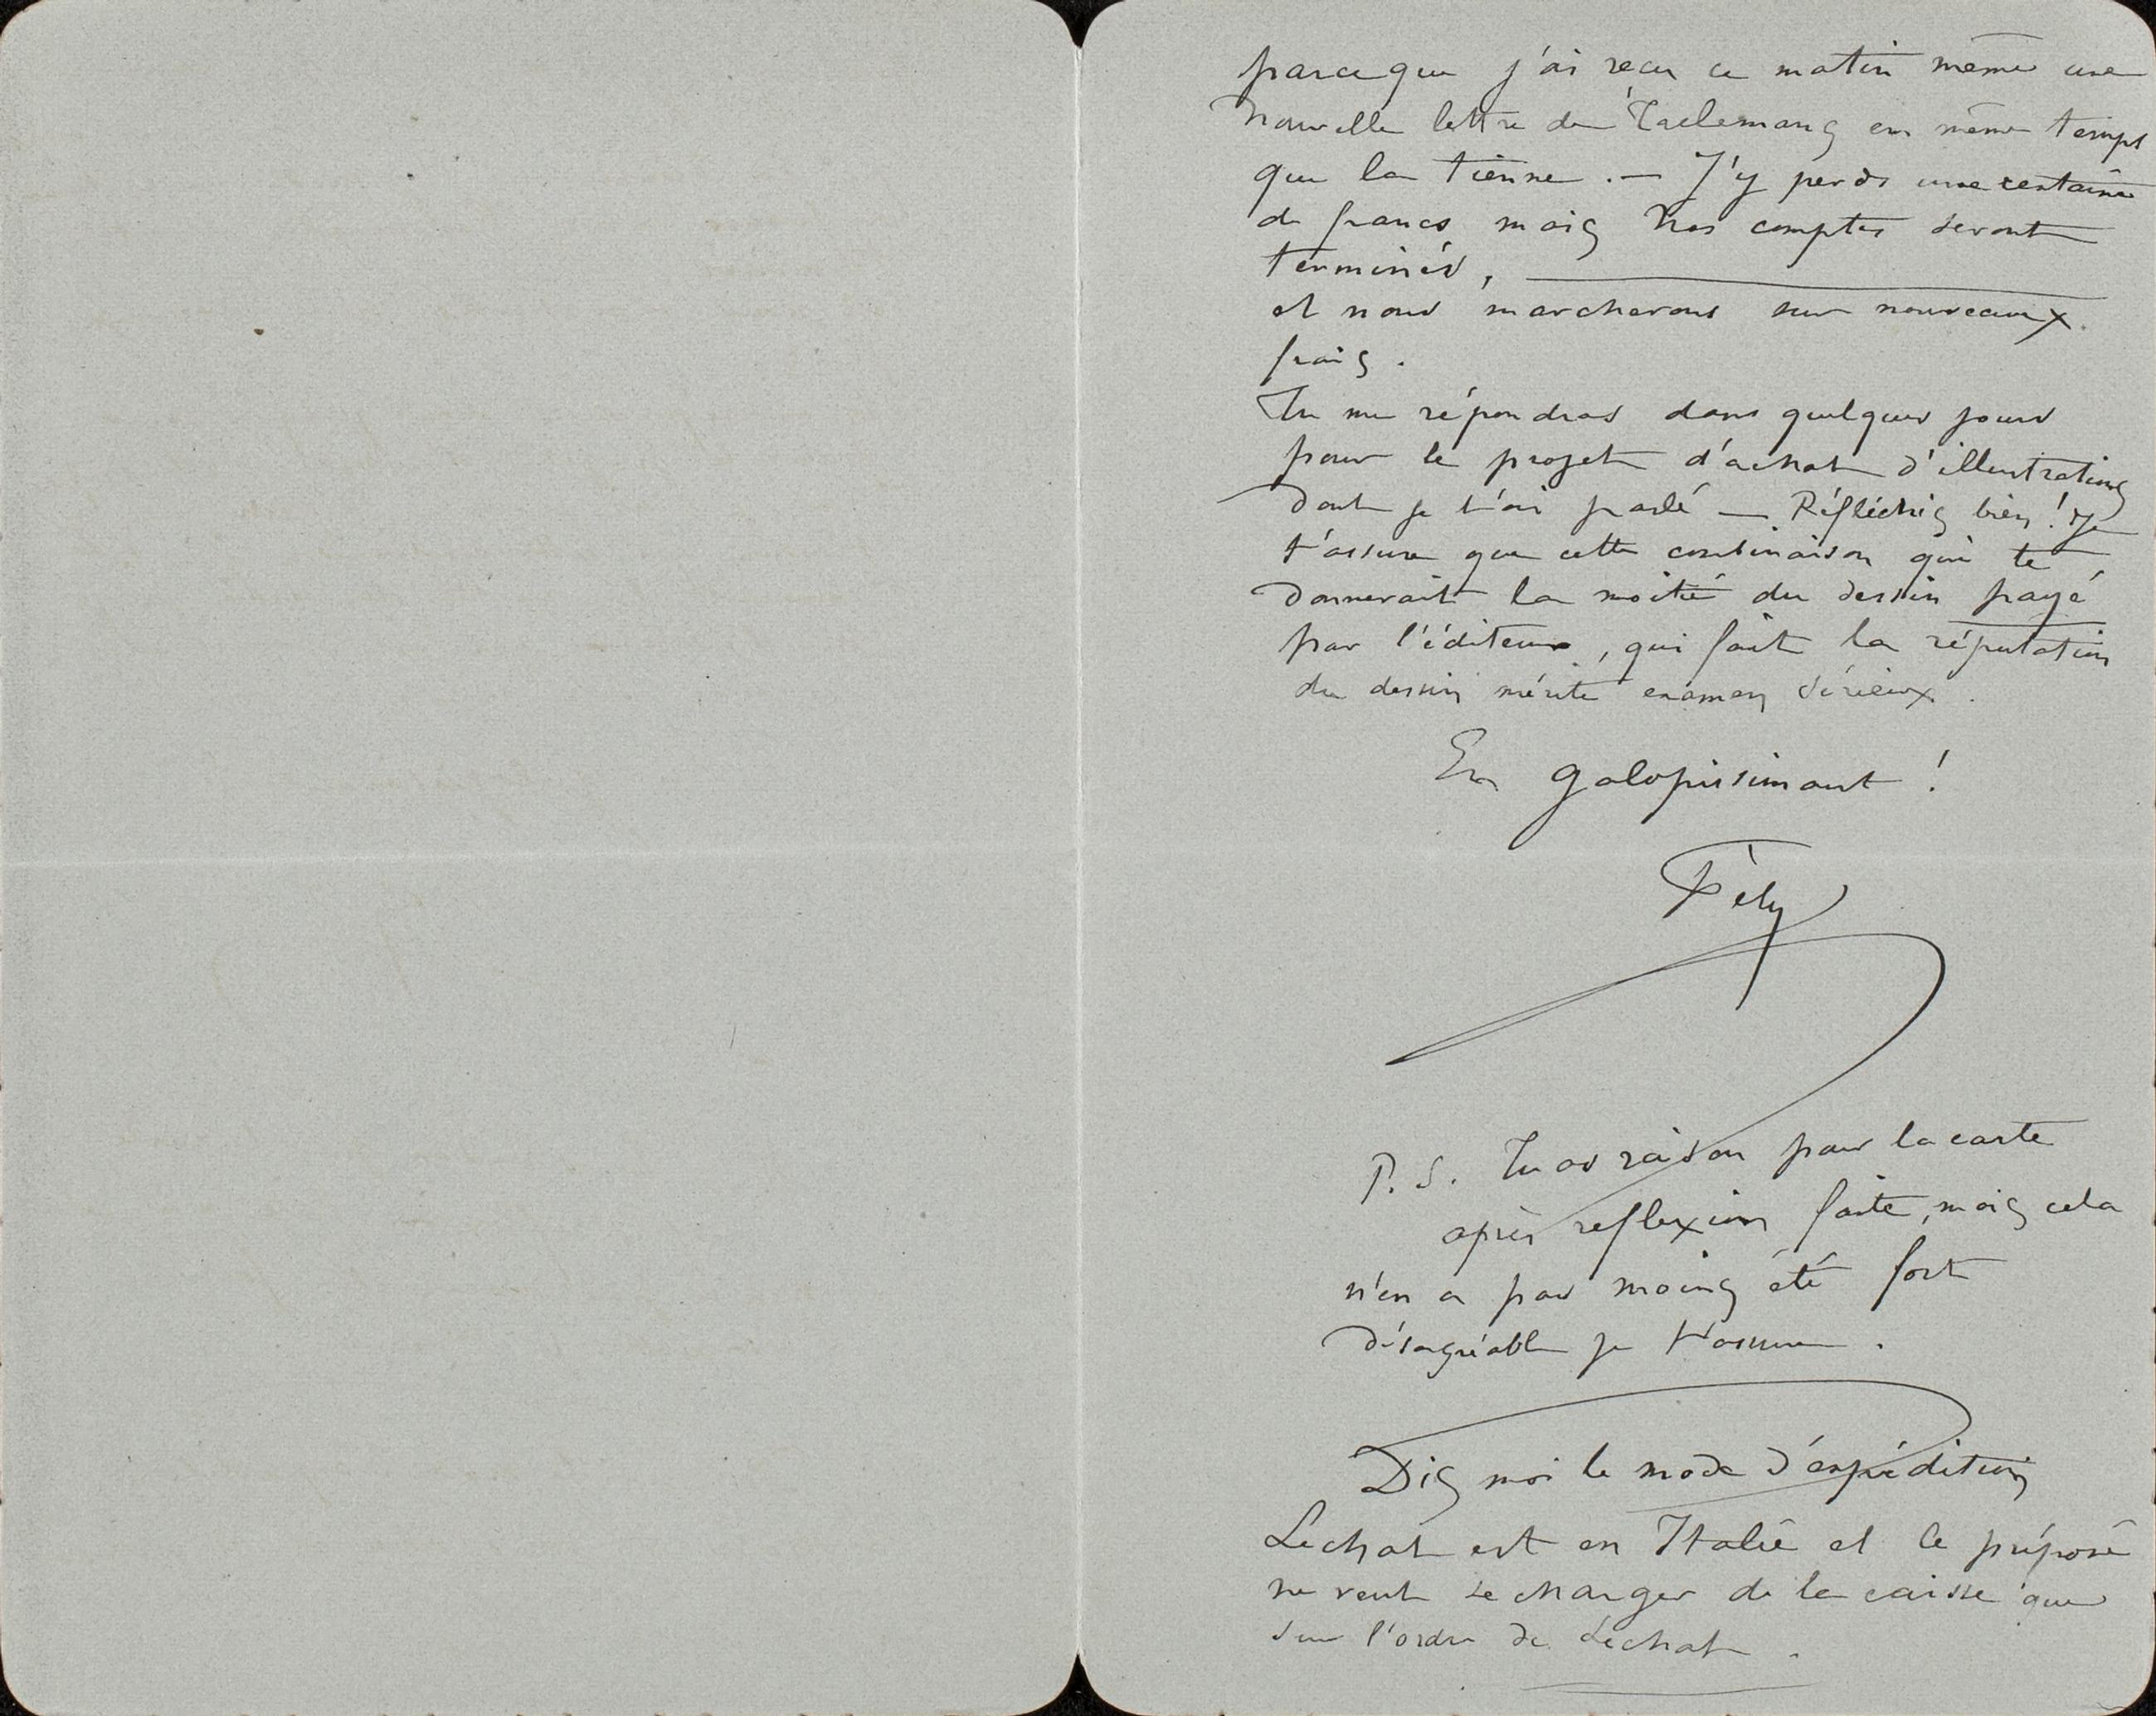 parceque j'ai reçu ce matin même une
nouvelle lettre de Taelemans en même temps
que la tienne. — J'y perds une centaine
de francs mais nos comptes seront
terminés,
et nous marcherons sur nouveaux
frais.
Tu me répondras dans quelques jours
pour le projet d'achat d'illustrations
dont je t'ai parlé — Réfléchis bien! Je
t'assure que cette combinaison qui te
donnerait la moitié du dessin payé
par l'éditeur, qui fait la réputation
du dessin mérite examen sérieux.
En galopissimant!
Fély
P. S. Tu as raison pour la carte
après reflexion faite, mais cela
n'en a pas moins été fort
désagréable je t'assure.
Dis moi le mode d'expédition
Lechat est en Italie et le préposé
ne veut se charger de la caisse que
sur l'ordre de Lechat.